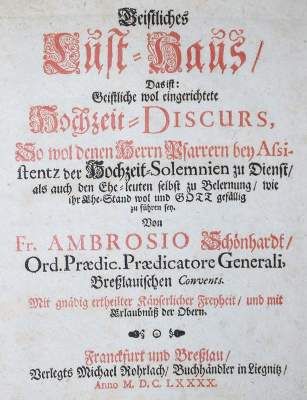 Geistliches
Lust-Haus/
Das ist:
Geistliche wol eingerichtete
Hochzeit-DISCURS,
So wol denen Herrn Pfarrern bey Assi-
stentz der Hochzeit-Solemnien zu Dienst/
als auch den Ehe-leuten selbst zu Belernung/ wie
ihr Ehe-Stand wol und GOTT gefällig
zu führen sey.
Von
Fr. AMBROSIO Schönhardt/
Ord. Prædic. Prædicatore Generali,
Breßlauischen Convents.
Mit gnädig ertheilter Käyserlicher Freyheit/ und mit
Erlaubnüß der Obern.
Franckfurt und Breßlau/
Verlegts Michael Rohrlach/ Buchhändler in Liegnitz/
Anno M. D. C. LXXXX.